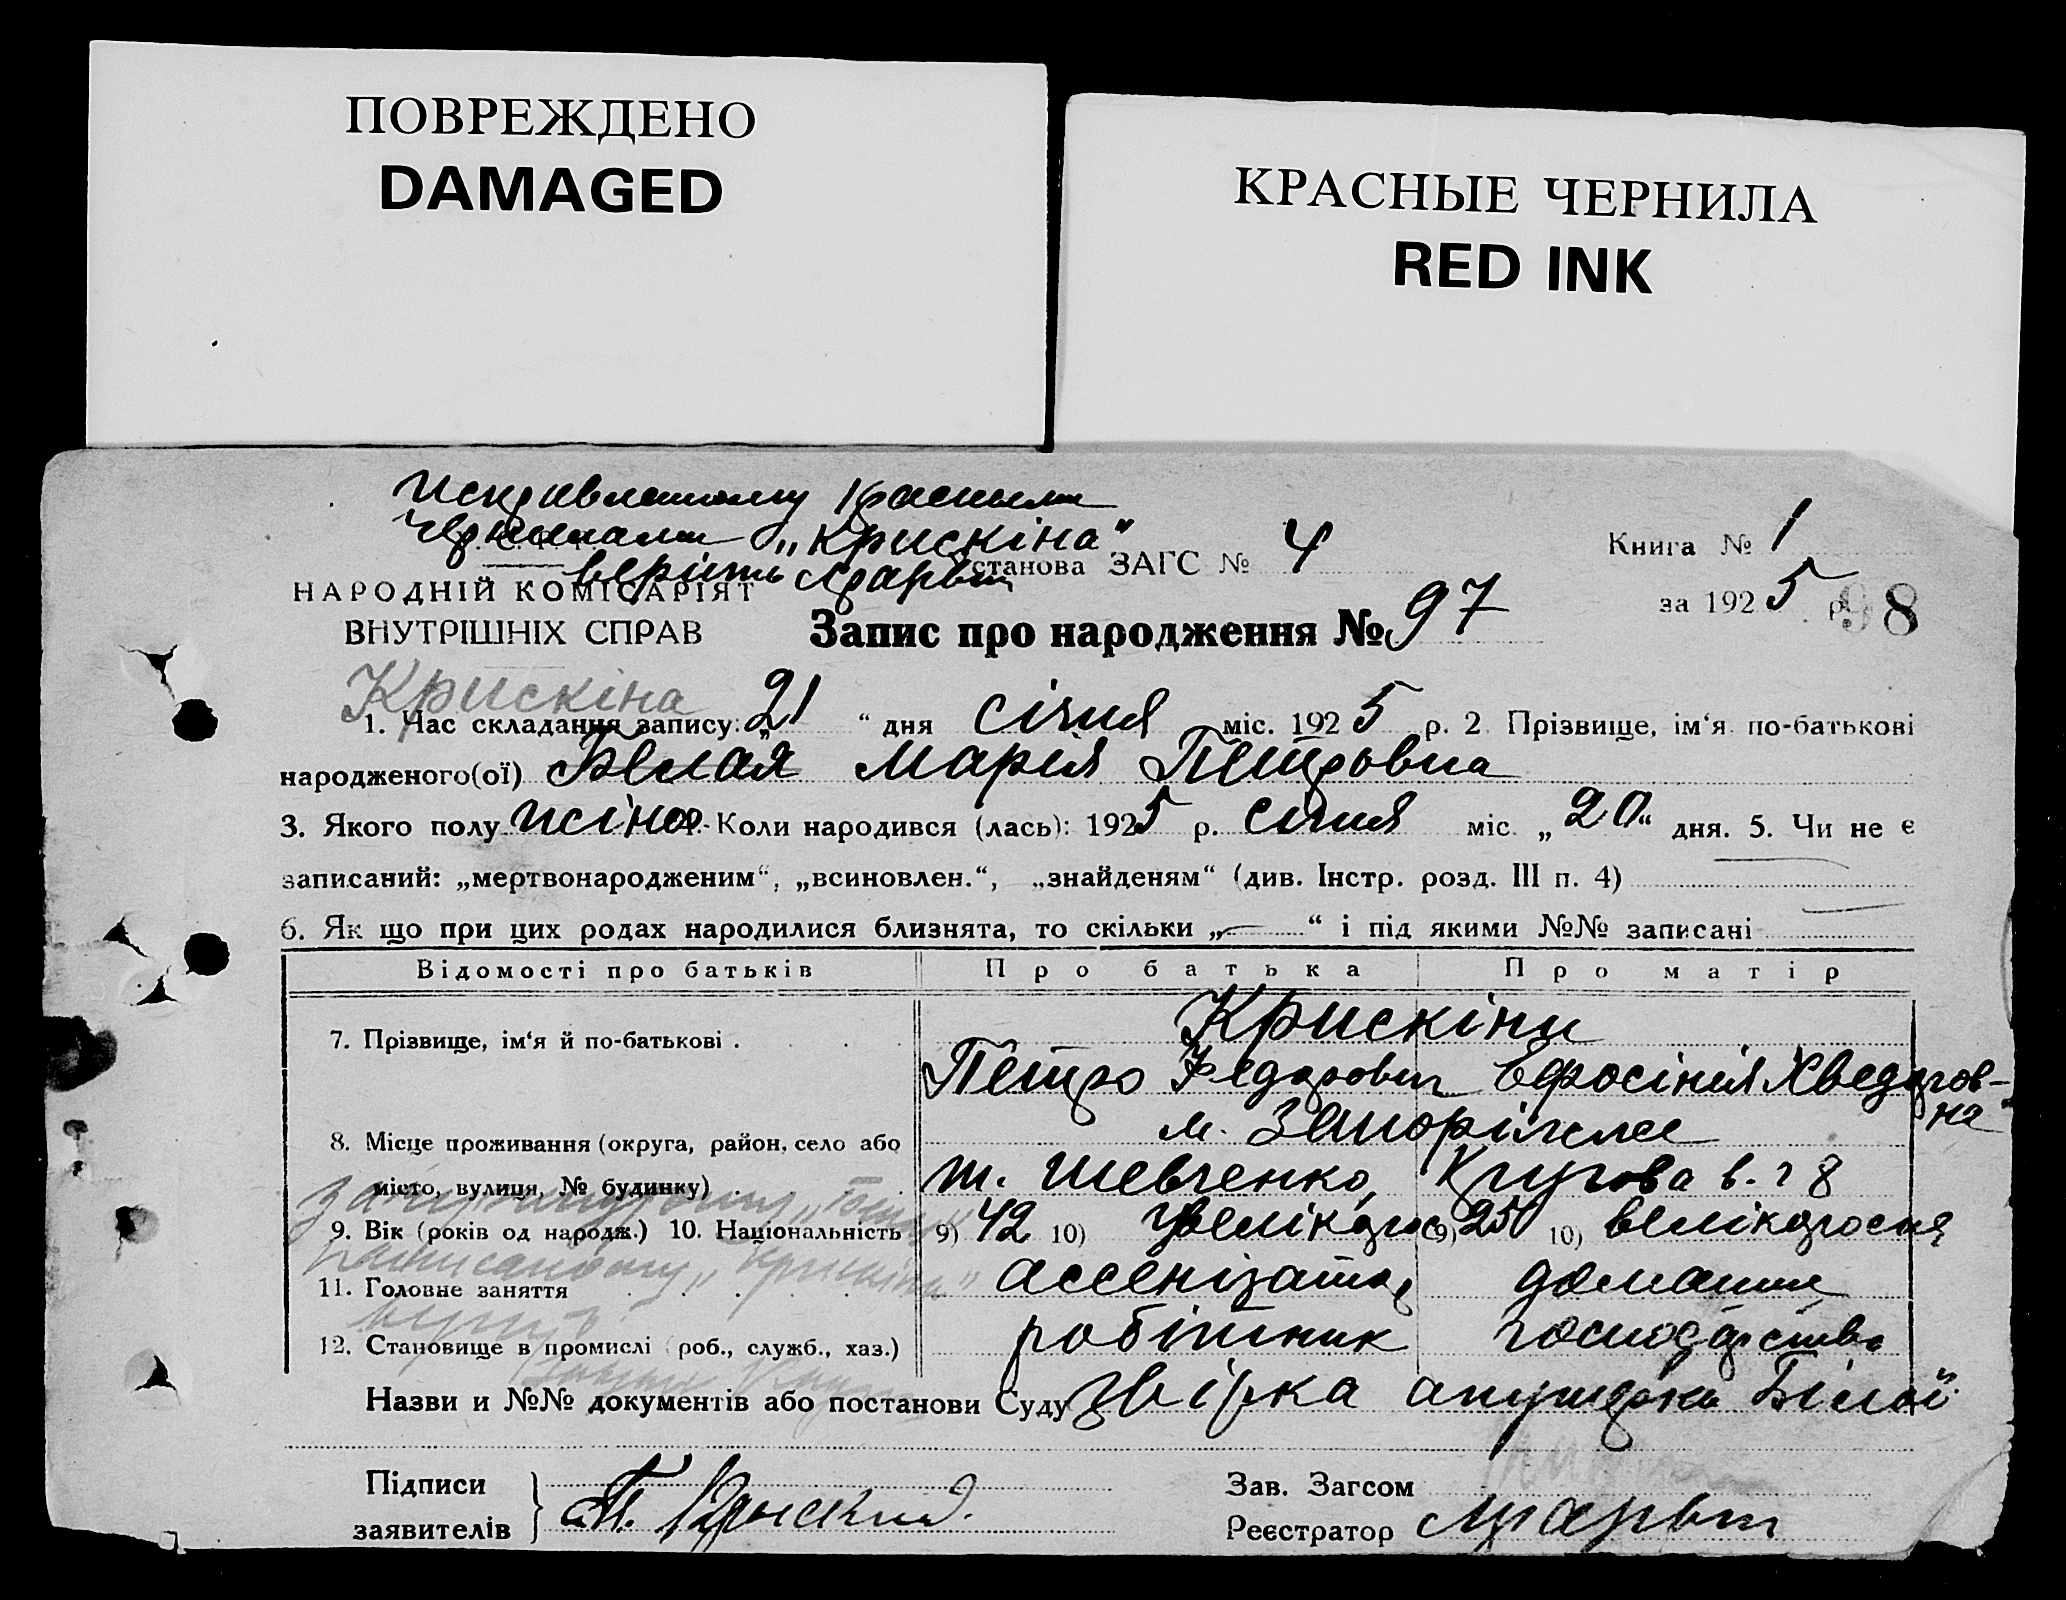 ПОВРЕЖДЕНО
DAMAGED
КРАСНЫЕ ЧЕРНИЛА
RED INK
Исправленному красными
чернилами „Крискіна“
верить
Установа ЗАГС № 4
Книга № 1
за 1925 р.
98
НАРОДНІЙ КОМІСАРІЯТ
ВНУТРІШНІХ СПРАВ
Запис про народження № 97
Крискіна
1. Час складання запису: „21“ дня січня міс. 1925 р. 2. Прізвище, ім‘я по-батькові
народженого(ої) Белая Марія Петровна
3. Якого полу жіноч. 4. Коли народився (лась): 1925 р. січня міс. „20“ дня. 5. Чи не є
записаний: „мертвонародженим“, „всиновлен.“, „знайденям“ (див. Інстр. розд. III п. 4)
6. Як що при цих родах народилися близнята, то скільки „—“ і під якими №№ записані
Відомості про батьків Про батька Про матір
7. Прізвище, ім‘я й по-батькові . Крискіни
Петро Федорович Ефросінія Хведоров-
на
8. Місце проживання (округа, район, село або м. Запоріжжє
місто, вулиця, № будинку) . т. Шевченко, Кругова в. 28
Зачеркнутому „Белая“
9. Вік (років од народж.) 10. Національність 9) 42 10) Велікорос 9) 25 10) велікоросія
написаному „Крискіна“
11. Головне заняття ассенізатор домашнє
верить
12. Становище в промислі (роб., служб., хаз.) робітник господарство
Назви и №№ документів або постанови Суду Звірка акушерки Білой
Підписи
заявителів } П. Крыскин
Зав. Загсом
Реєстратор